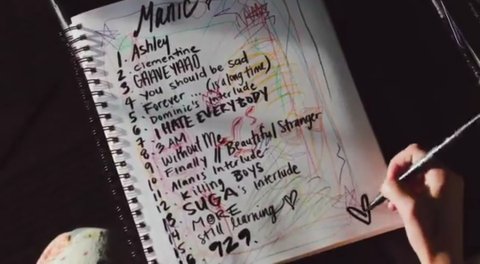 Manic
1. Ashley
2. clementine
3. GRAVEYARD
4. you should be sad
5. Forever ... (is a long time)
6. Dominic's Interlude
7. I HATE EVERYBODY
8. 3 AM
9. Without Me
10. Finally // Beautiful Stranger
11. Alanis' Interlude
12. Killing BOYS
13. SUGA's Interlude
14. MORE
15. Still Learning
16. 929.